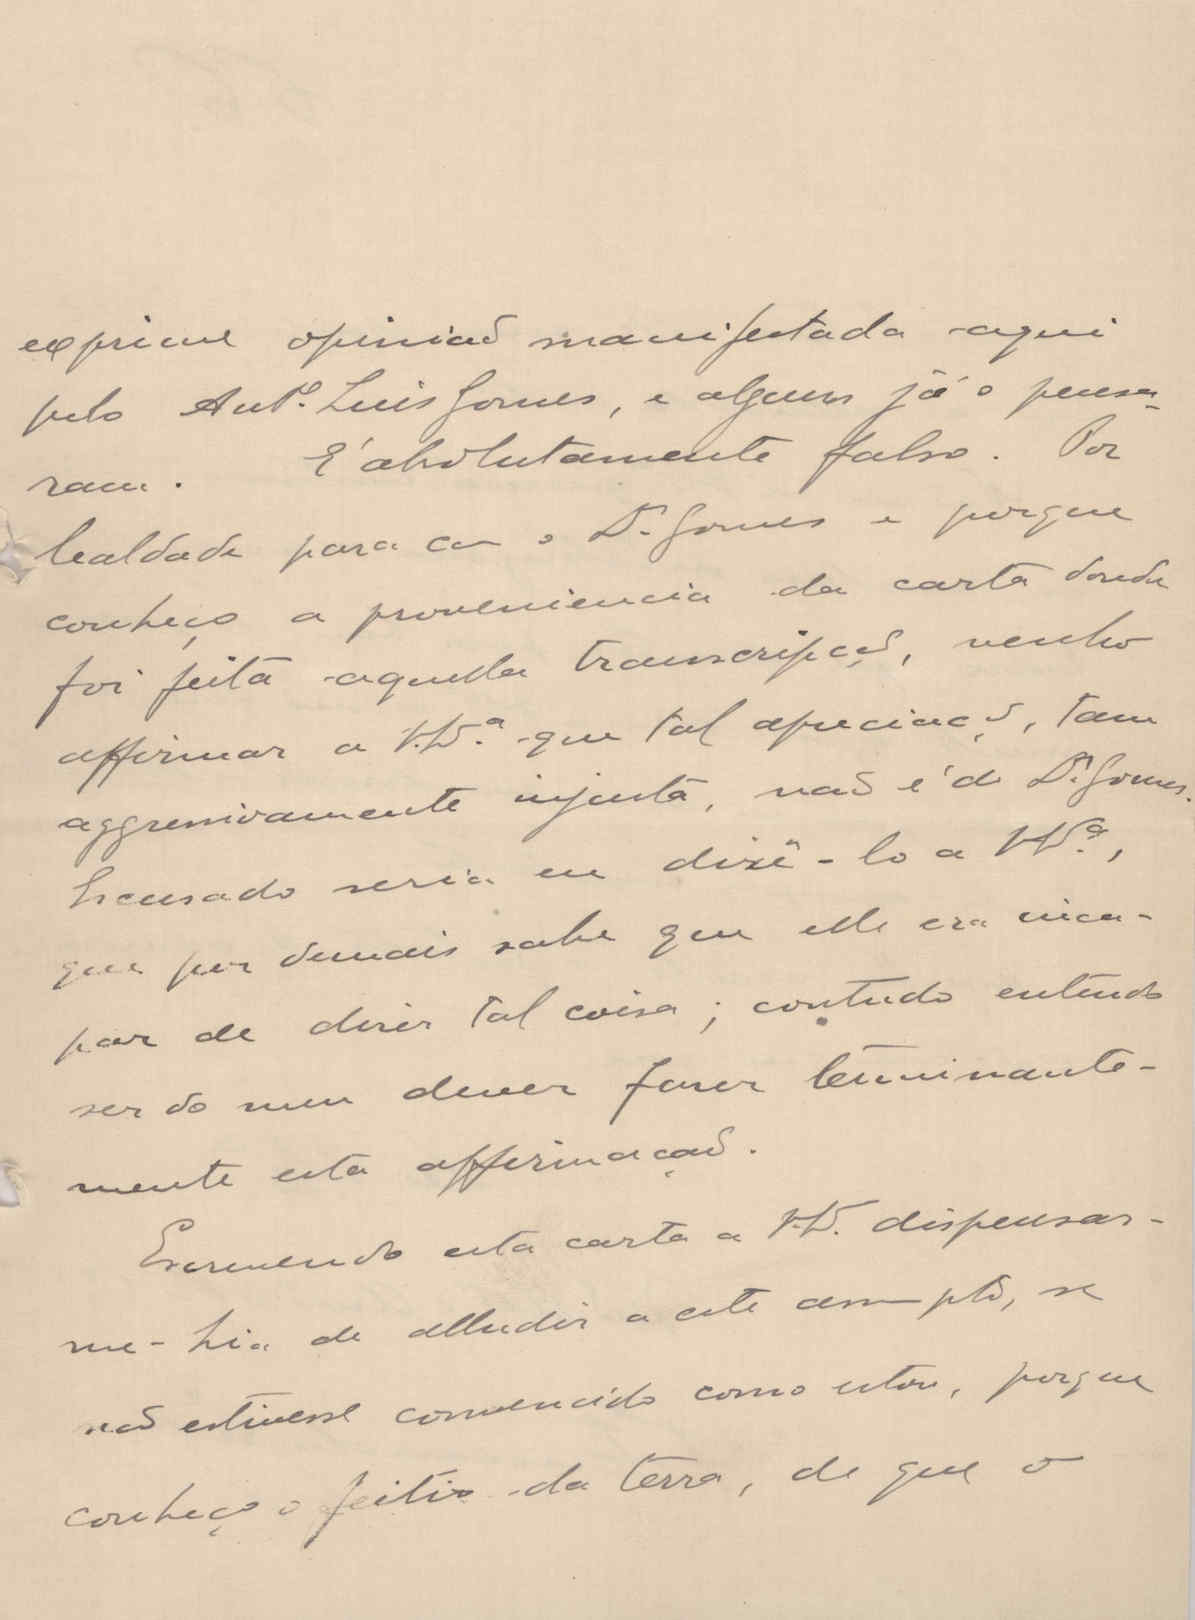 exprime opinião manifestada aqui
pelo Antº. Luis Gomes, e alguns já o pensa-
ram. É absolutamente falso. Por
lealdade para com o Dr. Gomes e porque
conheço a proveniencia da carta donde
foi feita aquella transcripção, venho
affirmar a V. Exª. que tal apreciação, tam
aggressivamente injusta, não é do Dr. Gomes.
Escusado seria eu dizê-lo a V. Exª.,
que por demais sabe que elle era inca-
paz de dizer tal coisa; contudo entendo
ser do meu dever fazer terminante-
mente esta affirmação.
Escrevendo esta carta a V. Ex. dispensar-
me-hia de alludir a este assumpto, se
não estivesse convencido como estou, porque
conheço o feitio da terra, de que o